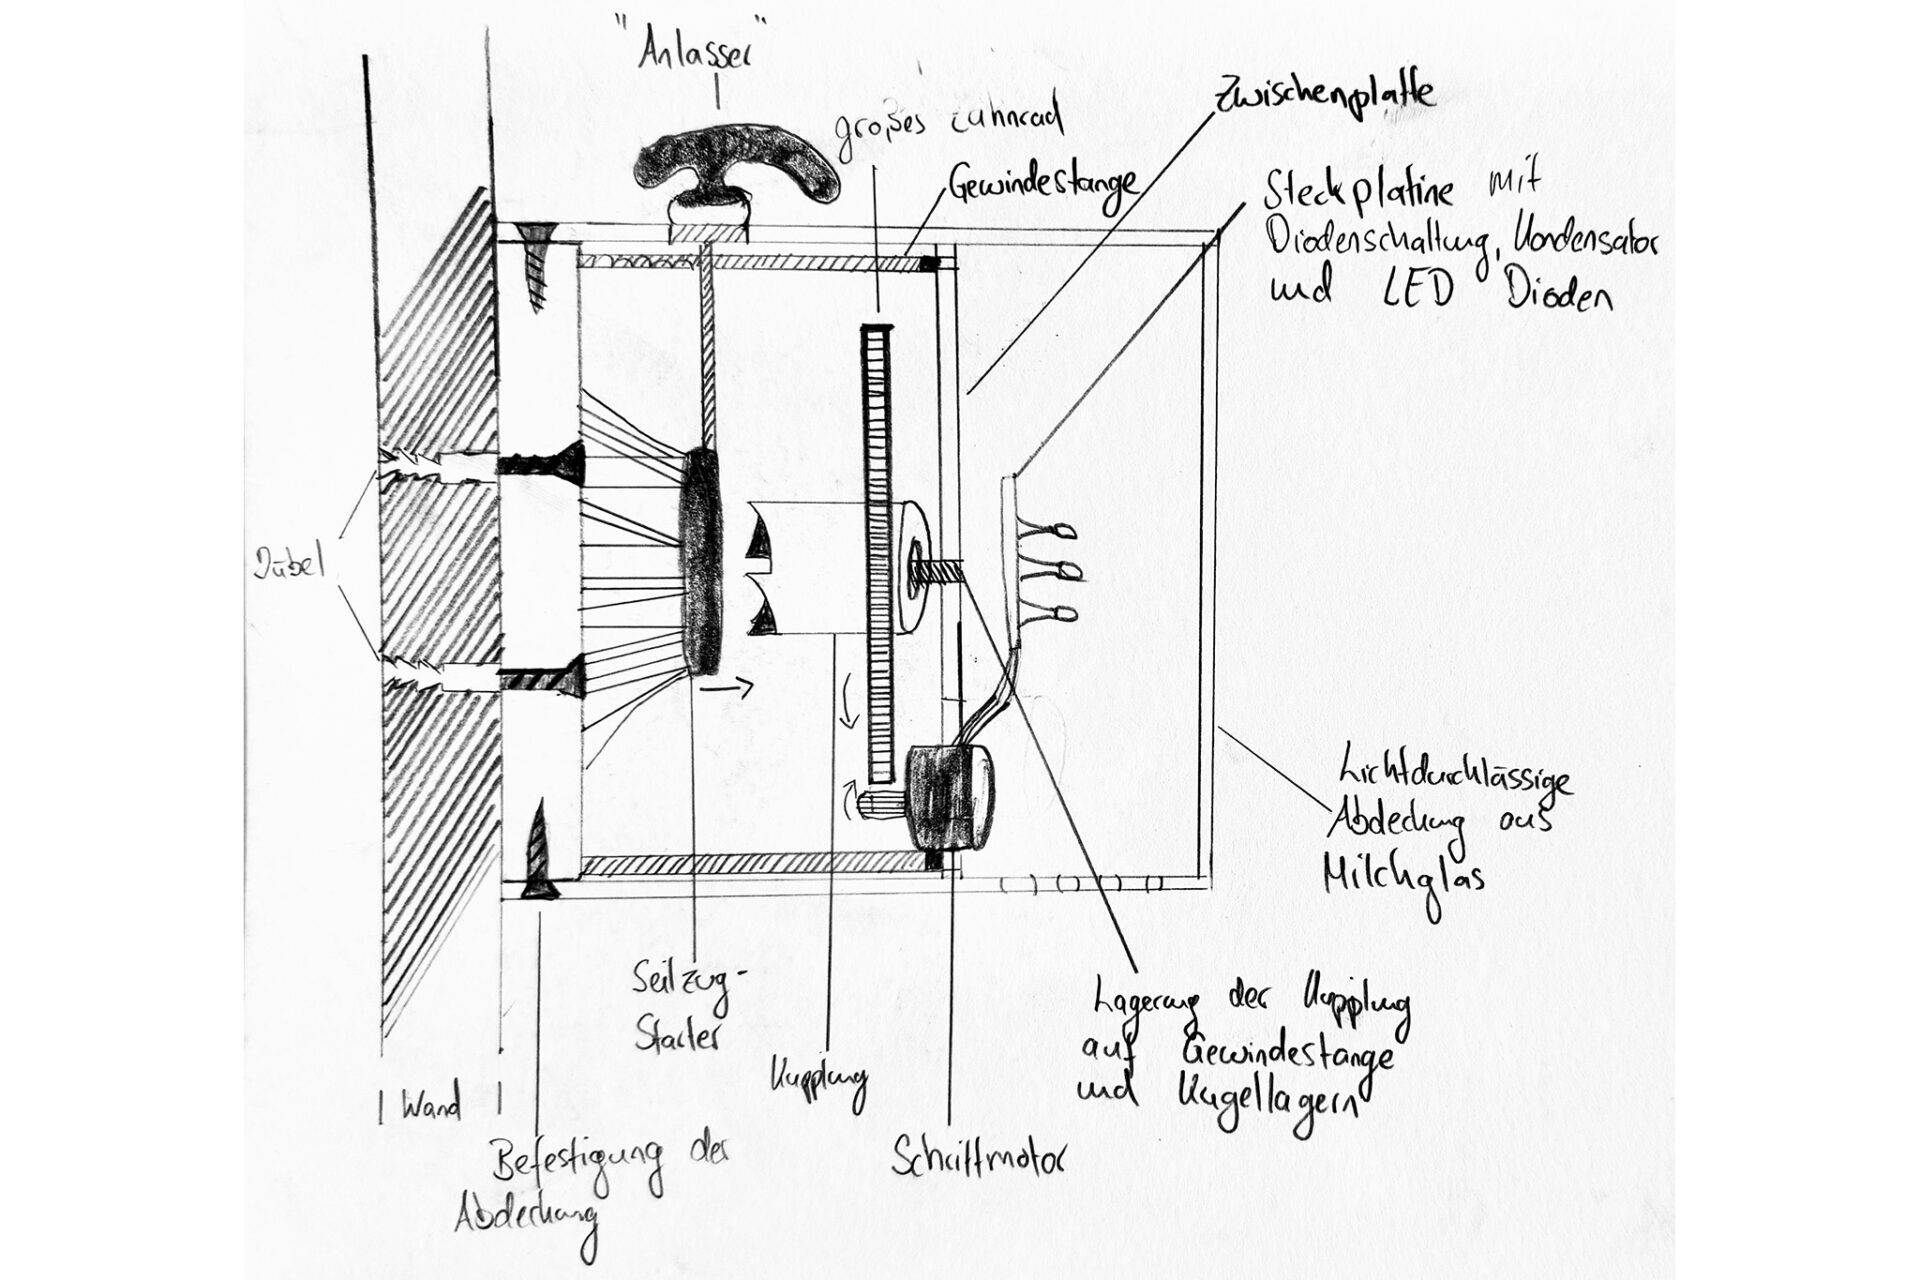 "Anlasser"
großes Zahnrad
Gewindestange
Zwischenplatte
Steckplatine mit
Diodenschaltung, Kondensator
und LED Dioden
Dübel
Lichtdurchlässige
Abdeckung aus
Milchglas
Seilzug-
Starter
Kupplung
Lagerung der Kupplung
auf Gewindestange
und Kugellagern
Wand
Befestigung der
Abdeckung
Schrittmotor